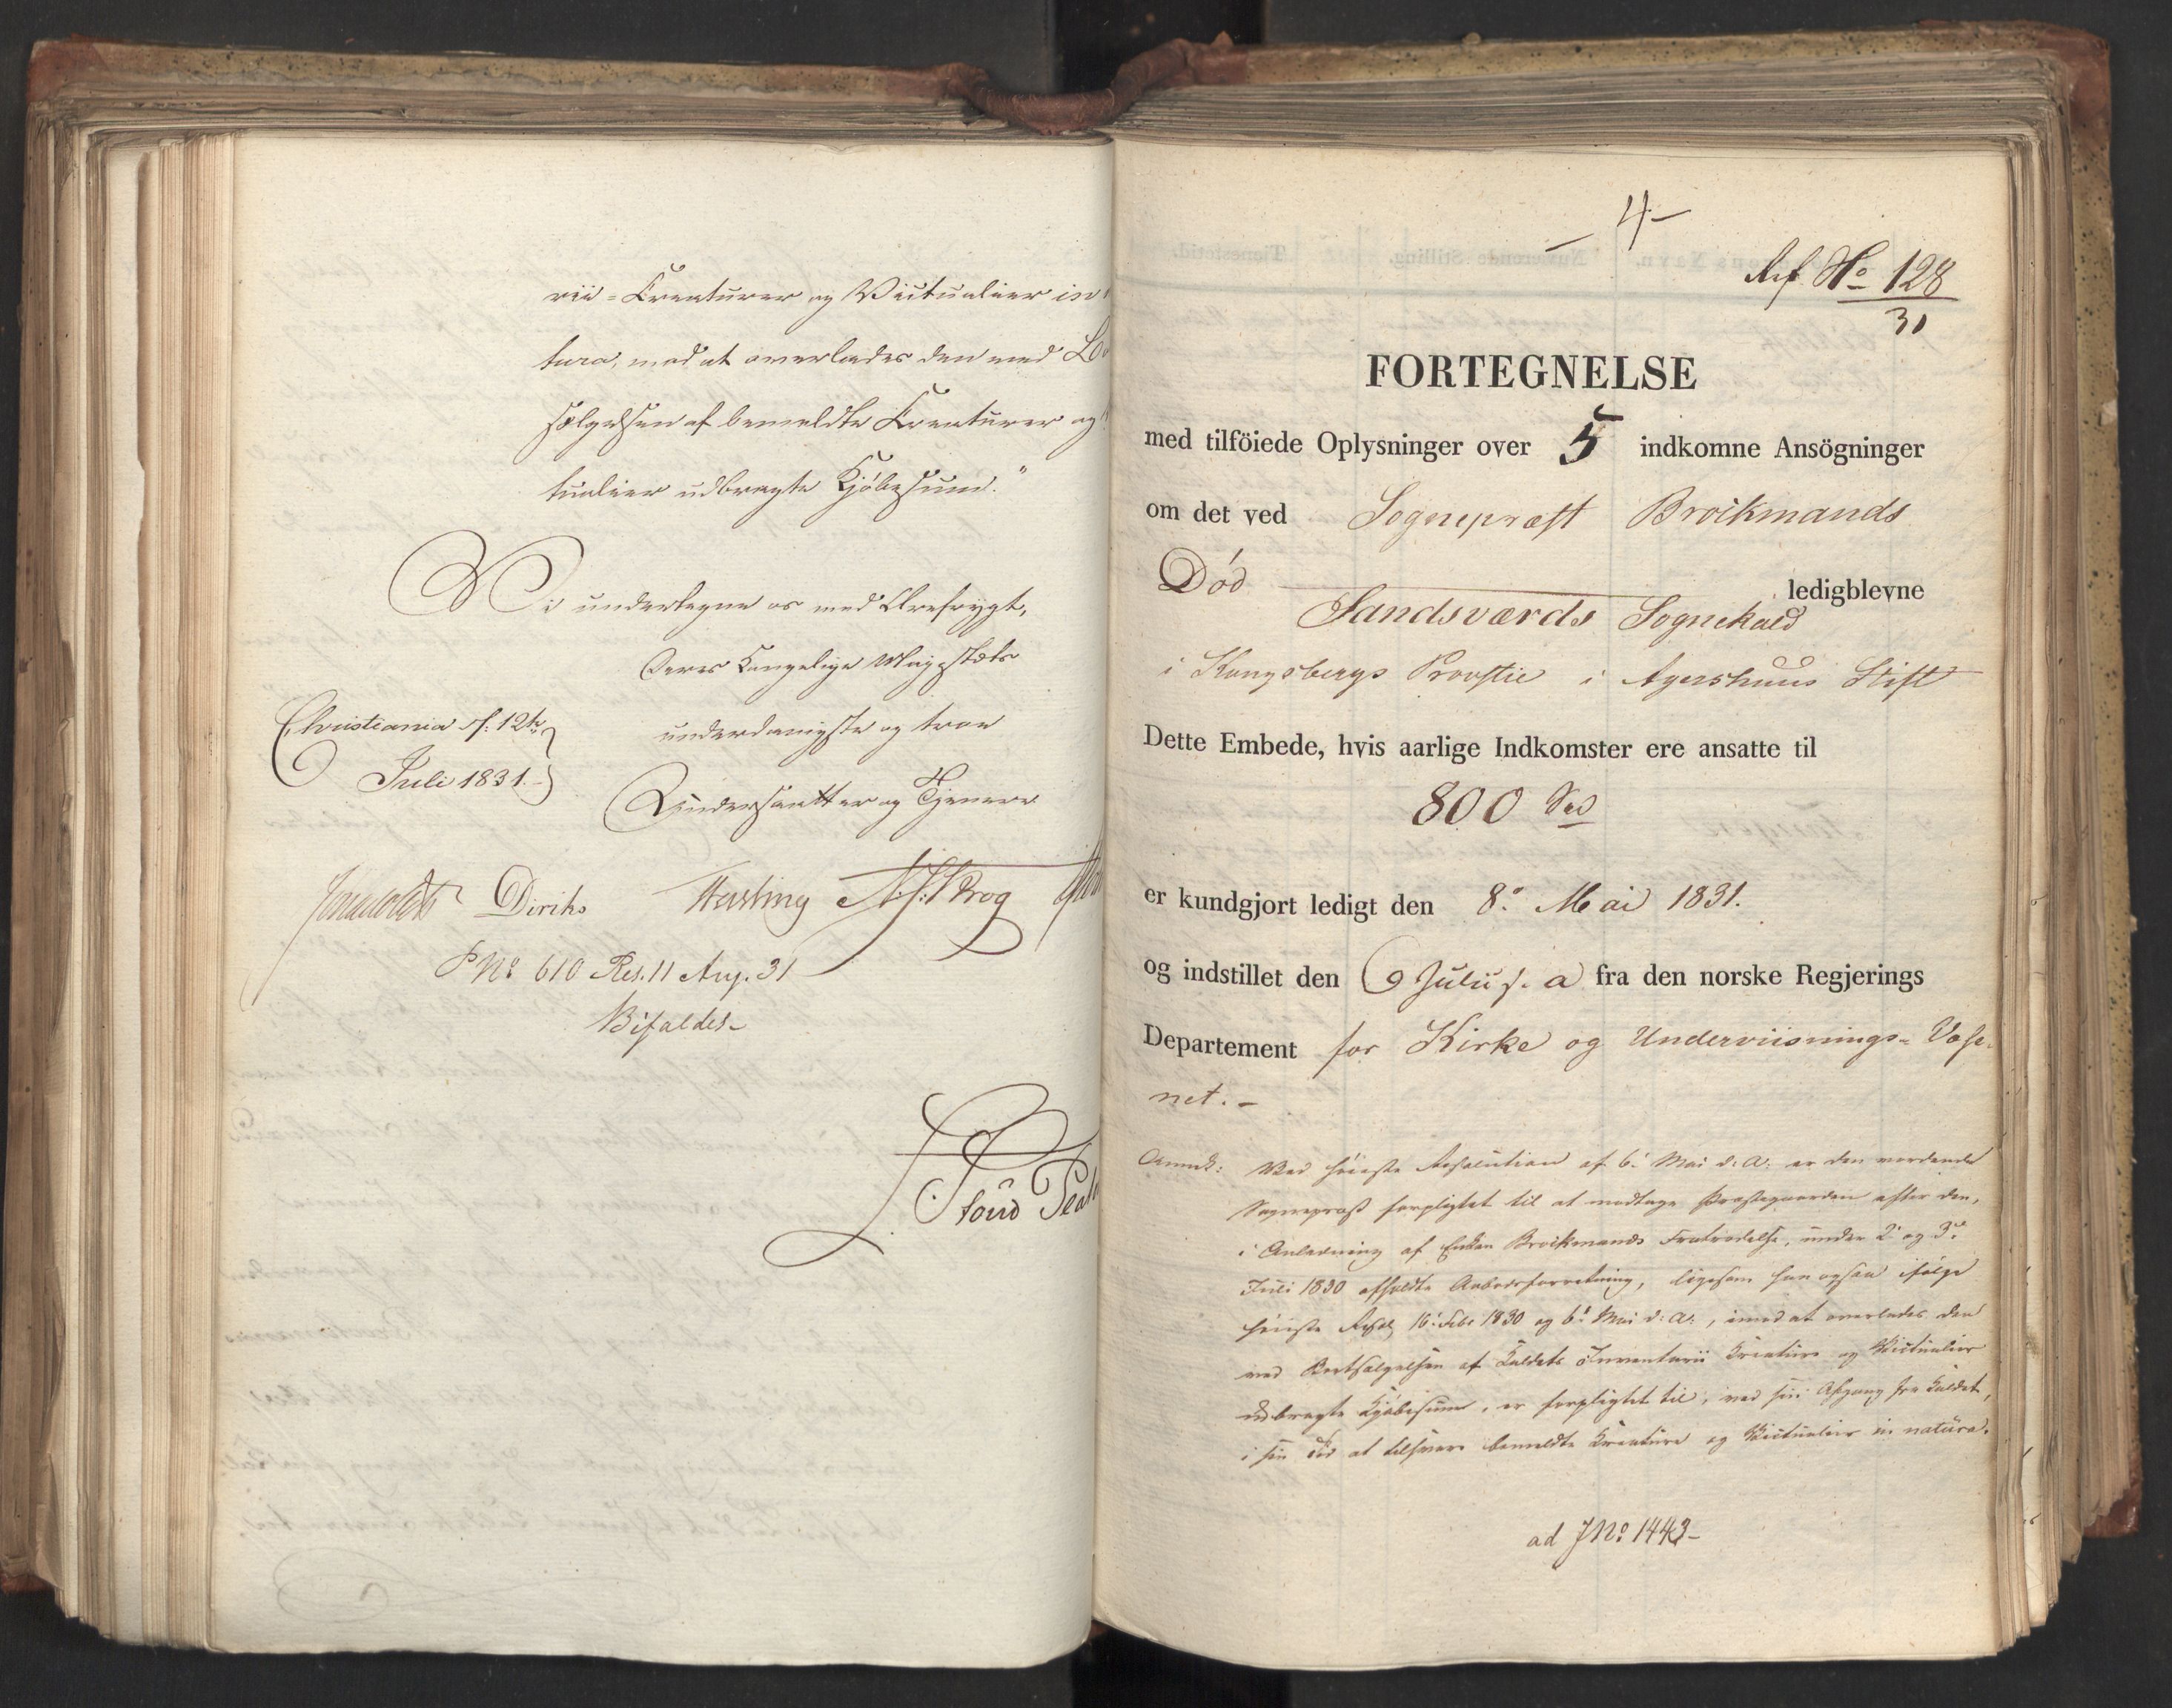 rii-Creaturer og Victualier in
tura, mod at overlades den ved
sælgelsen af bemeldte Creaturer og
tualier udbragte Kjøbesum."
Vi undertegne os med Ærefrygt,
Deres Kongelige Majestæts
underdanigste og troe
Undersaatter og Tjenere
Christiania d: 12te
Juli 1831.
Diriks N. J. Krog
PNo 610 Res. 11 Aug. 31
Bifaldes
- 4 -
Ref No 128
31
FORTEGNELSE
med tilföiede Oplysninger over 5 indkomne Ansögninger
om det ved Sognepræst Brockmands
Død ledigblevne
Sandsværds Sognekald
i Kongsbergs Provstie i Agershuus Stift
Dette Embede, hvis aarlige Indkomster ere ansatte til
800 Spd
er kundgjort ledigt den 8de Mai 1831.
og indstillet den 9 Julii s. a fra den norske Regjerings
Departement for Kirke og Underviisnings-Væse-
net. -
Anmk: Ved høieste Resolution af 6te Mai d: A: er den vordende
Sognepræst forpligtet til at modtage Præstegaarden efter den,
i Anledning af Enken Brockmands Fratrædelse, under 2de og 3de
Juli 1830 afholdte Aabodsforretning, ligesom han ogsaa ifølge
høieste Resol. 16de Febr 1830 og 6te Mai d: A:, imod at overlades den
ved Bortsælgelsen af Kaldets Inventarii Creature og Victualier
udbragte Kjøbesum, er forpligtet til, ved sin Afgang fra Kaldet,
i sin Tid at tilsvare bemeldte Creature og Victualier in natura.
ad JNo 1443-